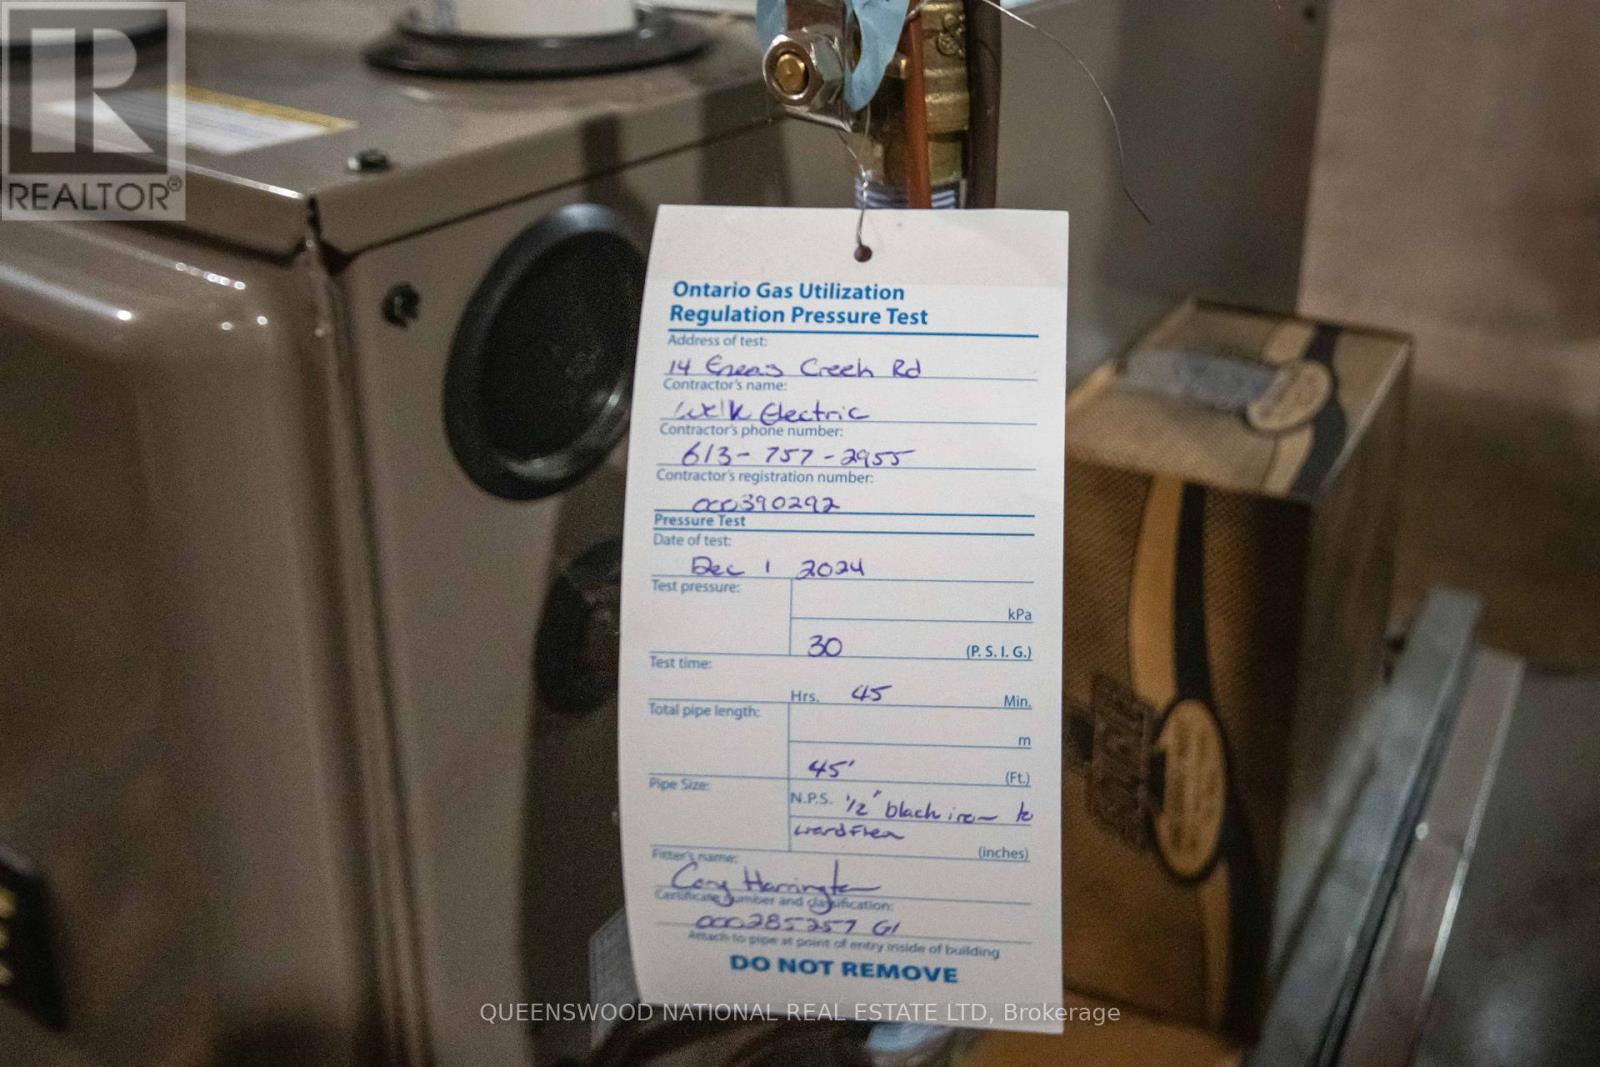 REALTOR®
Ontario Gas Utilization
Regulation Pressure Test
Address of test:
14 Eneas Creek Rd
Contractor's name:
Welk Electric
Contractor's phone number:
613-757-2955
Contractor's registration number:
000390292
Pressure Test
Date of test:
Dec 1 2024
Test pressure:
kPa
30 (P. S. I. G.)
Test time:
Hrs. 45 Min.
Total pipe length:
m
45' (Ft.)
Pipe Size:
N.P.S. 1/2" black iron to
wardflex
(inches)
Fitter's name:
Cory Harrington
Certificate number and classification:
000285257 G1
Attach to pipe at point of entry inside of building
DO NOT REMOVE
QUEENSWOOD NATIONAL REAL ESTATE LTD, Brokerage